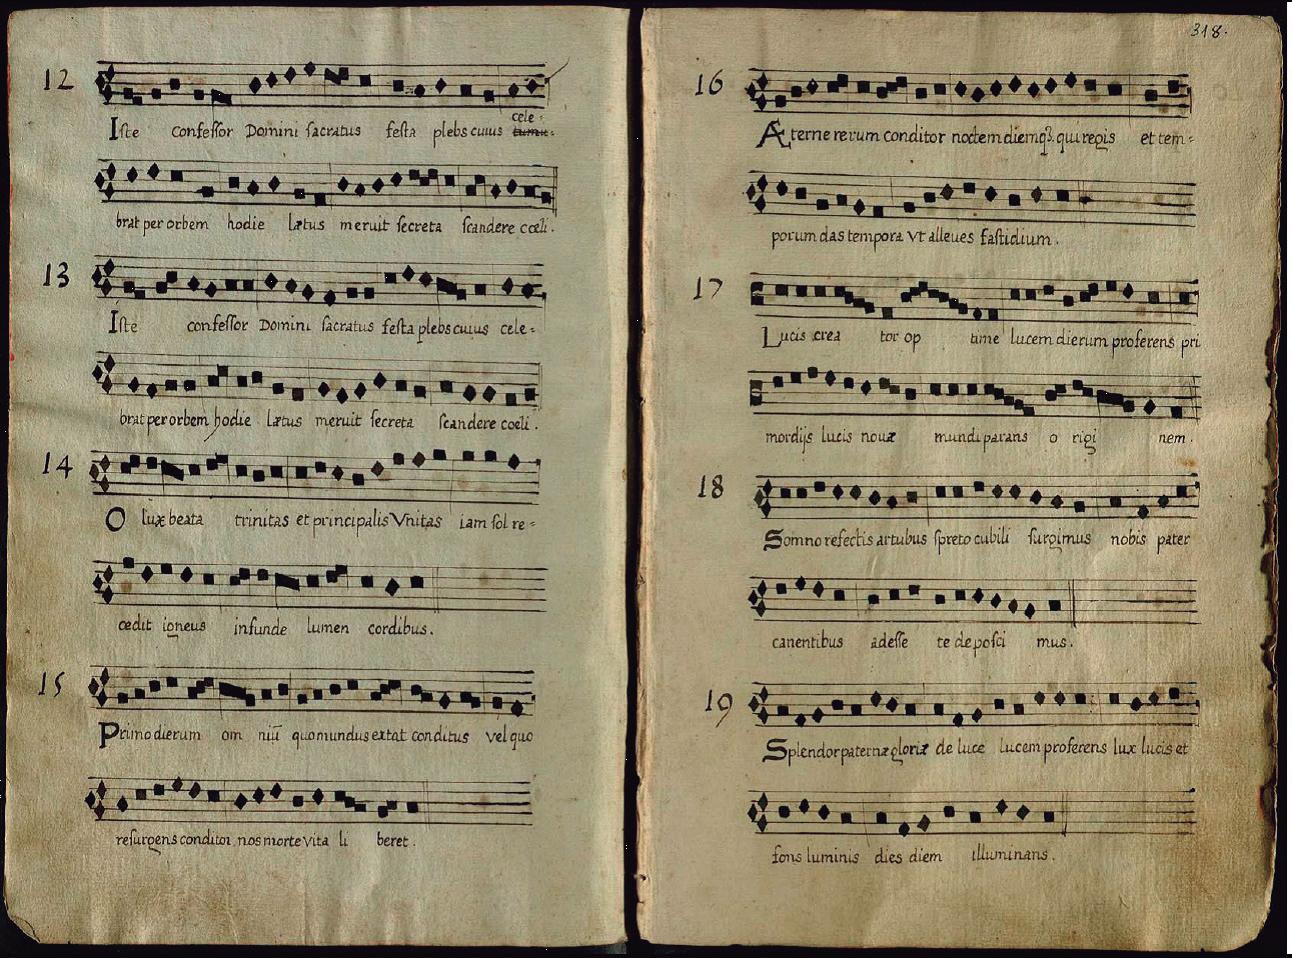 12
cele-
Iste confessor Domini sacratus festa plebs cuius
brat per orbem hodie lætus meruit secreta scandere cœli.
13
Iste confessor Domini sacratus festa plebs cuius cele-
brat per orbem hodie lætus meruit secreta scandere cœli.
14
O lux beata trinitas et principalis Vnitas iam sol re-
cedit igneus infunde lumen cordibus.
15
Primo dierum om niũ quo mundus extat conditus vel quo
resurgens conditor nos morte vita li beret.
318.
16
Æterne rerum conditor noctem diemq3. qui regis et tem-
porum das tempora vt alleues fastidium.
17
Lucis crea tor op time lucem dierum proferens pri
mordijs lucis nouæ mundi parans o rigi nem.
18
Somno refectis artubus spreto cubili surgimus nobis pater
canentibus adesse te deposci mus.
19
Splendor paternæ gloriæ de luce lucem proferens lux lucis et
fons luminis dies diem illuminans.